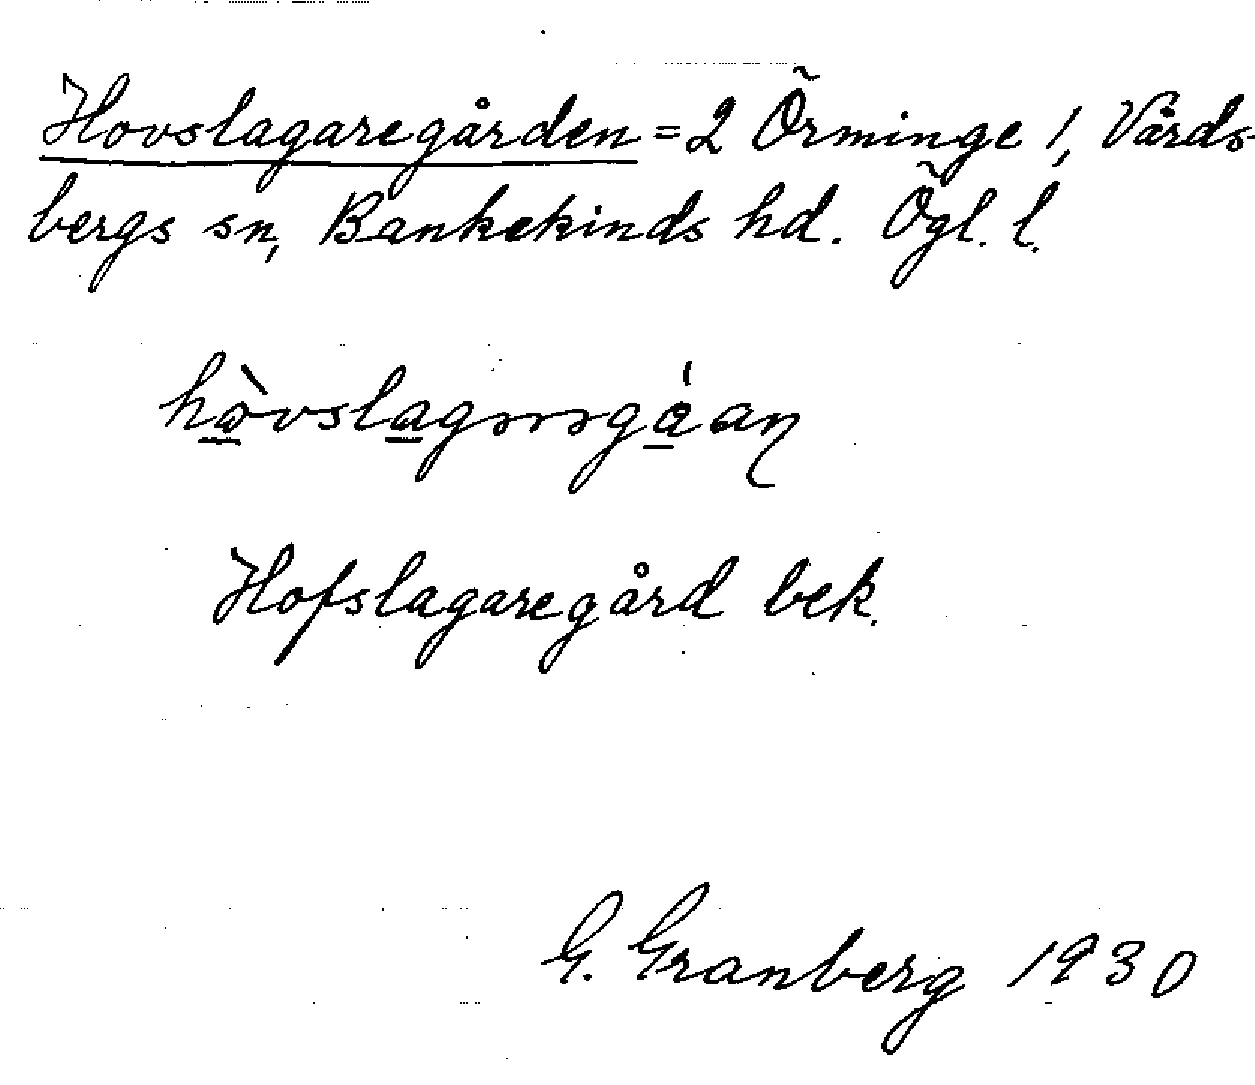 Hovslagaregården = 2 Örminge 1, Vårds-
bergs sn, Bankekinds hd. Ögl. l.
Hofslagaregård bek.
G. Granberg 1930